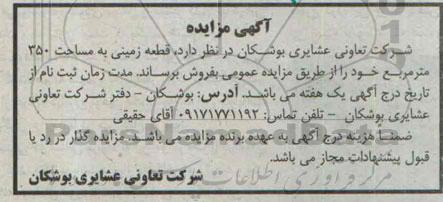 آگهی مزایده
شرکت تعاونی عشایری بوشکان در نظر دارد، قطعه زمینی به مساحت ۳۵۰
مترمربع خود را از طریق مزایده عمومی بفروش برساند. مدت زمان ثبت نام از
تاریخ درج آگهی یک هفته می باشد. آدرس: بوشکان - دفتر شرکت تعاونی
عشایری بوشکان - تلفن تماس: ۰۹۱۷۱۷۷۱۱۹۲ آقای حقیقی
ضمنا هزینه درج آگهی به عهده برنده مزایده می باشد. مزایده گذار در رد یا
قبول پیشنهادات مجاز می باشد.
شرکت تعاونی عشایری بوشکان